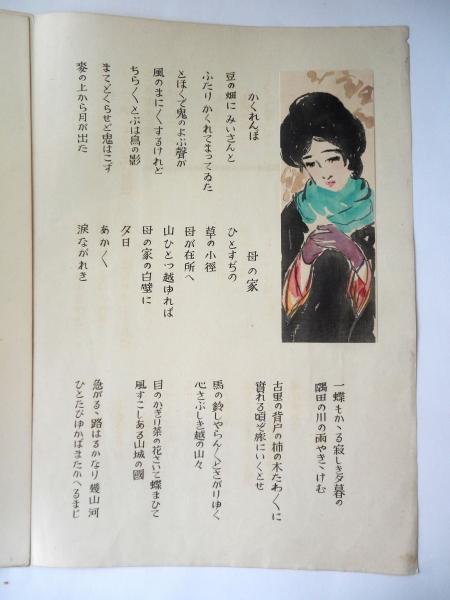 かくれんぼ
豆の畑に みいさんと
ふたりかくれてまつてゐた
とほくで鬼のよぶ聲が
風のまに〱するけれど
ちら〱とぶは鳥の影
まてどくらせど鬼はこず
麥の上から月が出た
母の家
ひとすぢの
草の小徑
母が在所へ
山ひとつ越ゆれば
母の家の白壁に
夕日
あか〱
涙ながれき
一蝶もかゝる寂しき夕暮の
隅田の川の雨やきゝけむ
古里の背戸の柿の木たわ〱に
實れる頃を旅にいくとせ
馬の鈴しやらん〱とさがりゆく
心さぶしき越の山々
目のかぎり茶の花さいて蝶まひて
風すこしある山城の國
急がるゝ路はるかなり幾山河
ひとたびゆかばまたかへるまじ